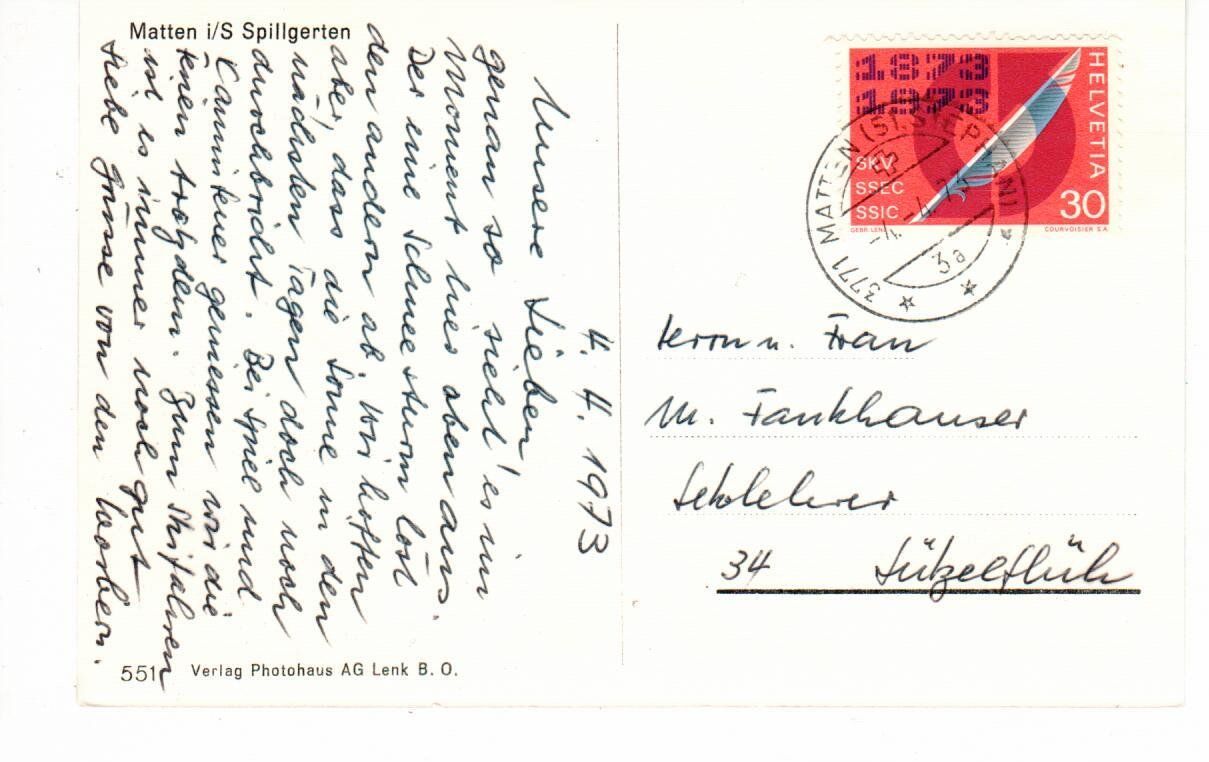 Matten i/S Spillgerten
4. 4. 1973
Unsere Lieben,
genau so sieht es im
Moment hier oben aus.
Der eine Schneesturm löst
den andern ab. Wir hoffen
aber, dass die Sonne in den
nächsten Tagen doch noch
durchbricht. Bei Spiel und
Caminfeuer geniessen wir die
Ferien trotzdem. Zum Skifahren
ist es immer noch gut
Liebe Grüsse von den Worbern.
551
Verlag Photohaus AG Lenk B. O.
1873
1973
HELVETIA
SKV
SSEC
SSIC
30
COURVOISIER S A
3771 MATTEN (ST. STEPHAN)
-4.-4.73
3a
Herrn u. Frau
M. Fankhauser
Seklehrer
34 Lützelflüh